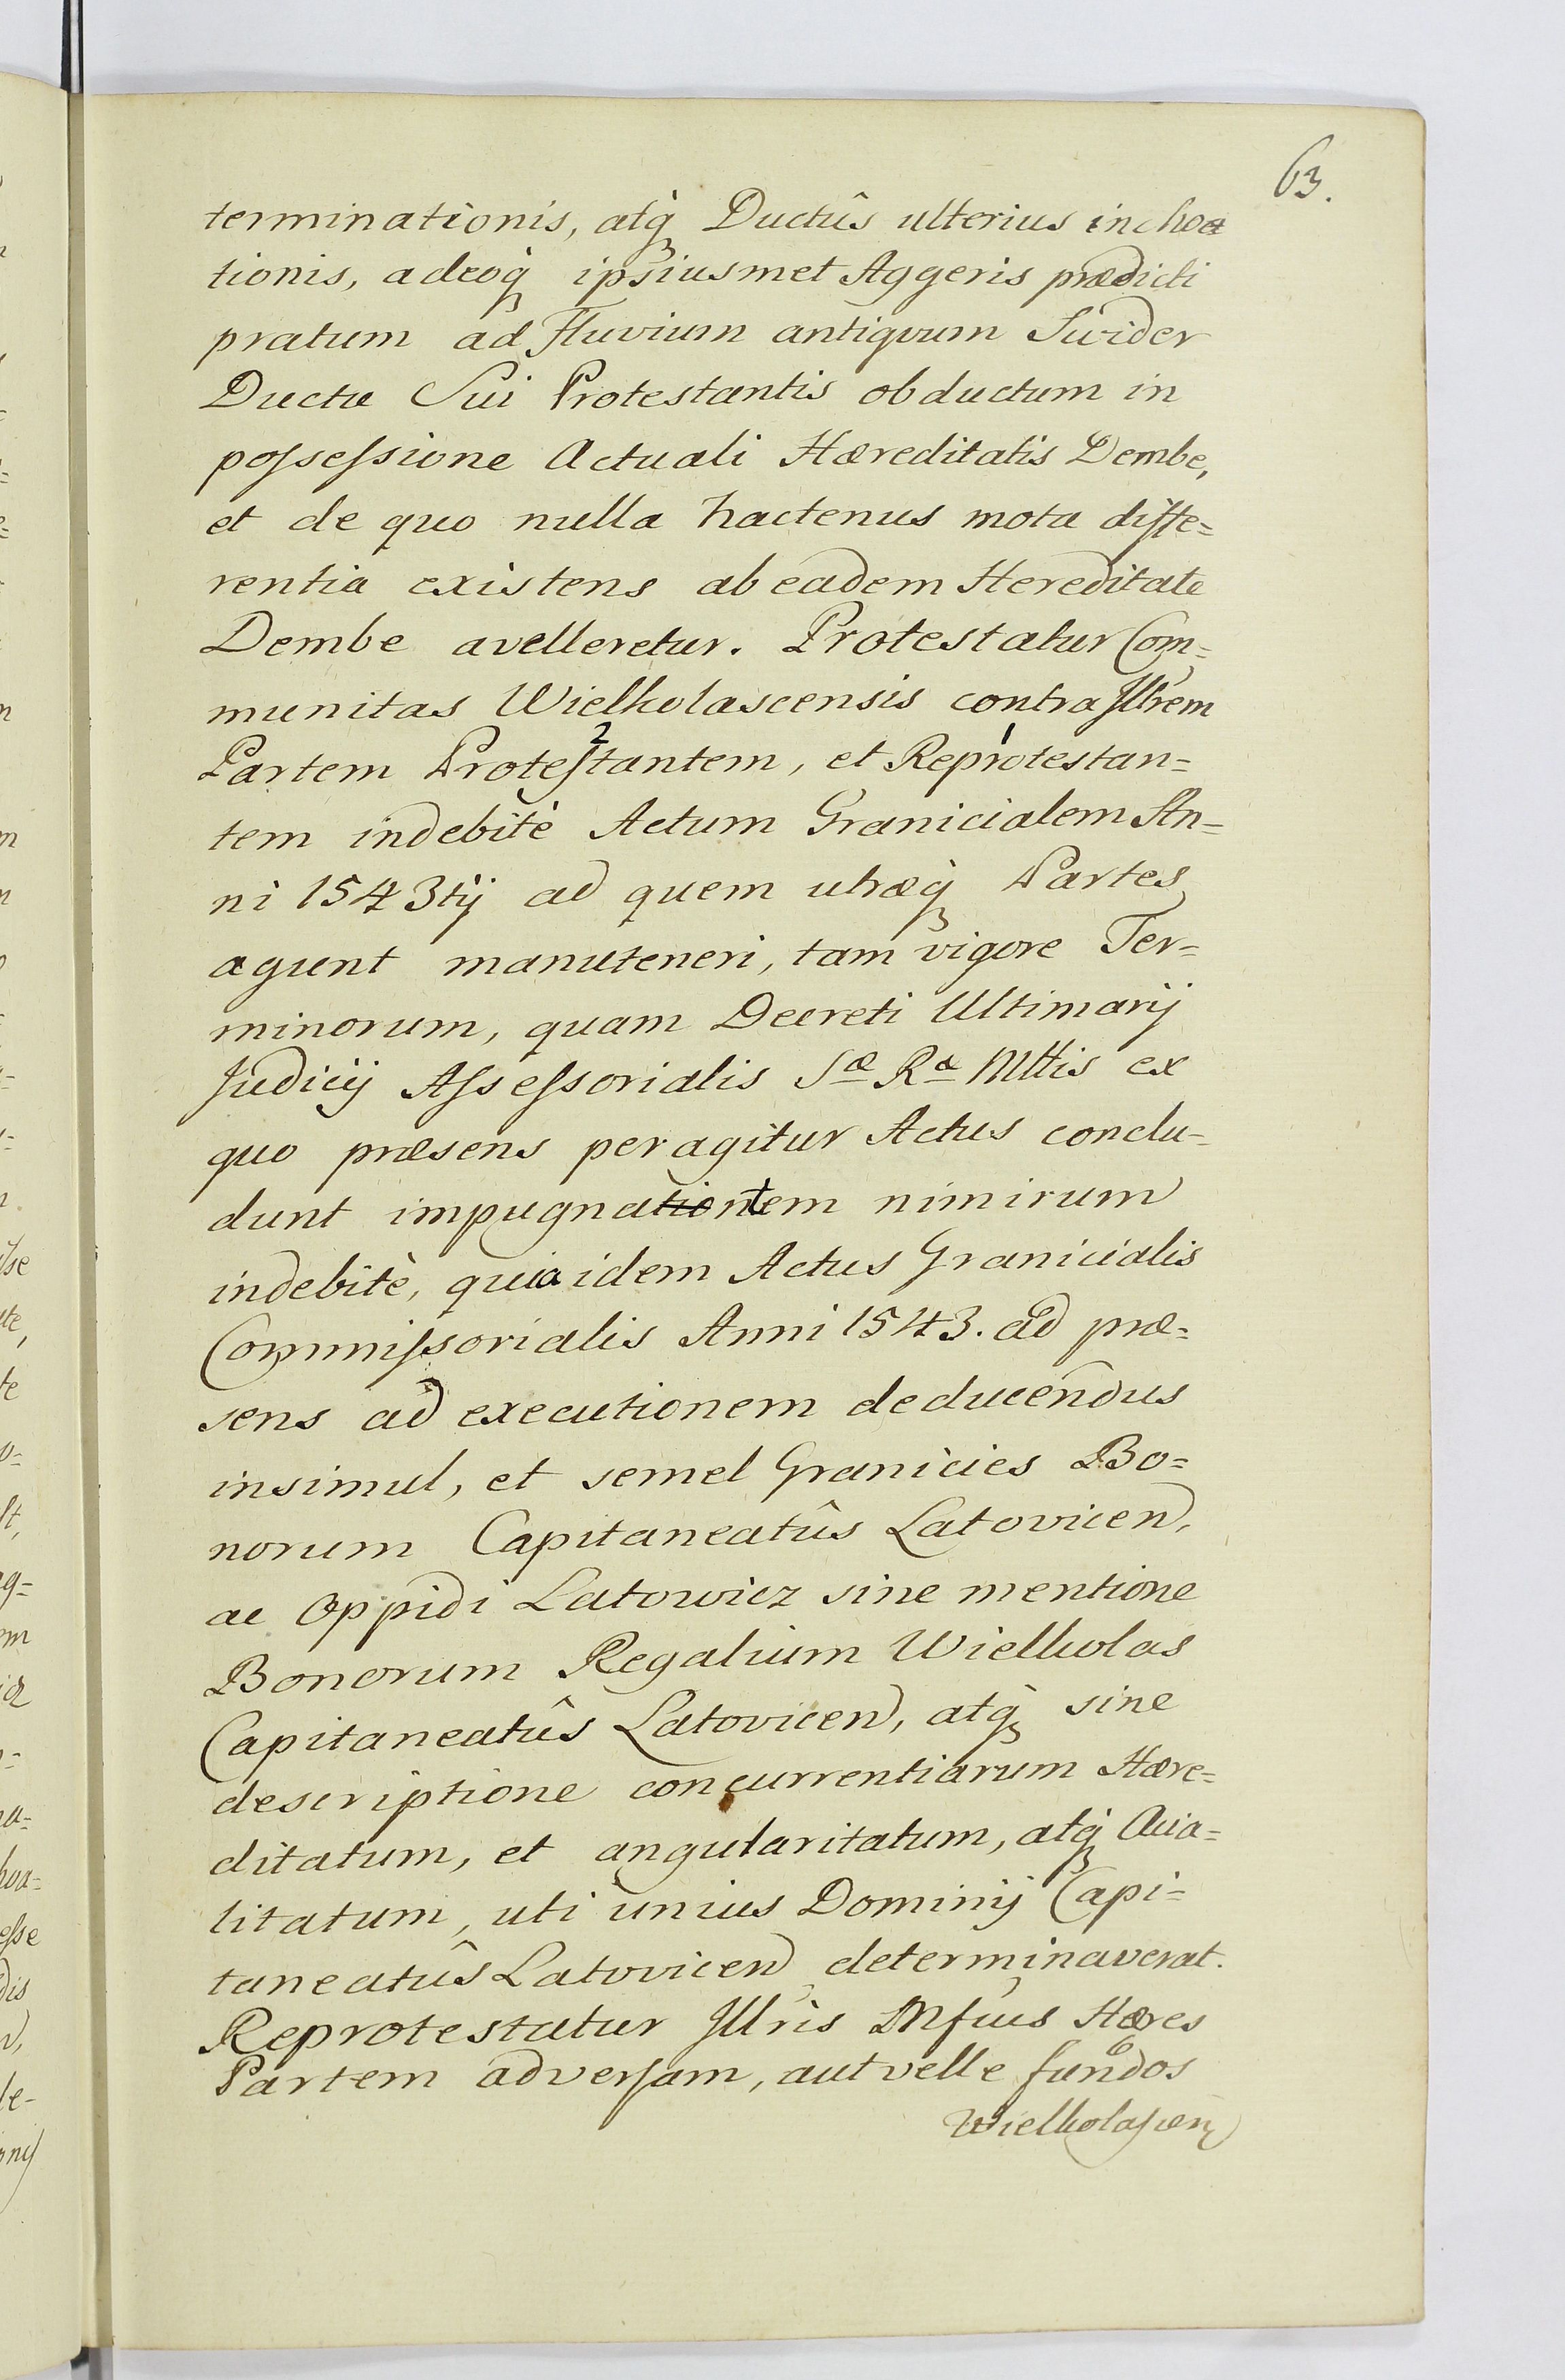 63.
terminationis, atq̀ Ductûs ulterius inchoa
tionis, adeoq̀ ipsiusmet Aggeris prædicti
pratum ad Fluvium antiqvum Swider
Ductu Sui Protestantis obductum in
poſseſsione Actuali Hæreditatis Dembe,
et de quo nulla hactenus mota diffe=
rentia existens ab eadem Hereditate
Dembe avelleretur. Protestatur Com=
munitas Wielkolascensis contra Jllrem
Partem Proteſ2tantem, et Repr1otestan=
tem indebitè Actum Granicialem An=
ni 1543tij ad quem utræq̀ Partes
agunt manuteneri, tam vigore Ter=
minorum, quam Decreti Ultimarij
Judicij Aſseſsorialis Sæ Ræ Mttis ex
quo præsens peragitur Actus conclu=
dunt impugnationtem nimirum
indebitè, quia idem Actus Granicialis
Commiſsorialis Anni 1543. ad præ=
sens ad executionem deducendus
insimul, et semel Granicies Bo=
norum Capitaneatûs Latovicen,
ac Oppidi Latowicz sine mentione
Bonorum Regalium Wielkolas
Capitaneatûs Latovicen, atq̀ sine
descriptione concurrentiarum Hære=
ditatum, et angularitatum, atq̀ Acia=
litatum, uti unius Dominij Capi=
taneatûs Latovicen determinaverat.
Reprotestatur Jllris Mſicus Hæres
Partem adverſam, aut velle fundos
Wielkolaſcen